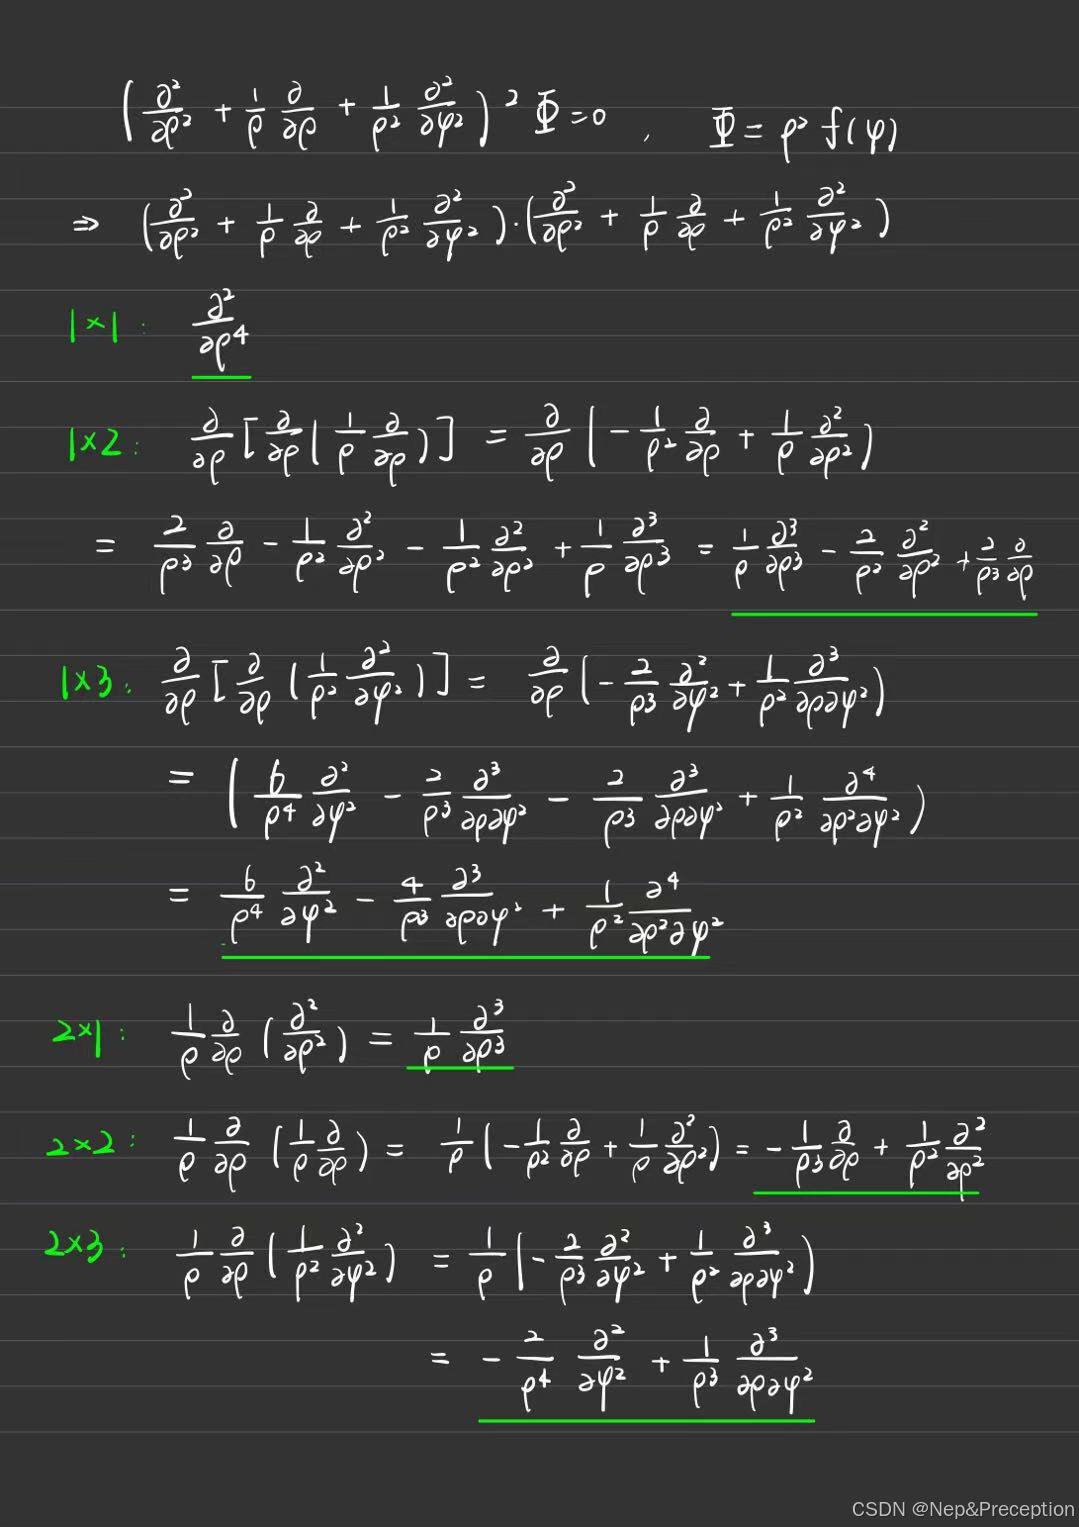 (∂²/∂ρ² + 1/ρ ∂/∂ρ + 1/ρ² ∂²/∂φ²)² Φ = 0 , Φ = ρ² f(φ)
⇒ (∂²/∂ρ² + 1/ρ ∂/∂ρ + 1/ρ² ∂²/∂φ²)·(∂²/∂ρ² + 1/ρ ∂/∂ρ + 1/ρ² ∂²/∂φ²)
1×1: ∂²/∂ρ⁴
1×2: ∂/∂ρ [∂/∂ρ (1/ρ ∂/∂ρ)] = ∂/∂ρ (-1/ρ² ∂/∂ρ + 1/ρ ∂²/∂ρ²)
= 2/ρ³ ∂/∂ρ - 1/ρ² ∂²/∂ρ² - 1/ρ² ∂²/∂ρ² + 1/ρ ∂³/∂ρ³ = 1/ρ ∂³/∂ρ³ - 2/ρ² ∂²/∂ρ² + 2/ρ³ ∂/∂ρ
1×3: ∂/∂ρ [∂/∂ρ (1/ρ² ∂²/∂φ²)] = ∂/∂ρ (-2/ρ³ ∂²/∂φ² + 1/ρ² ∂³/∂ρ∂φ²)
= (6/ρ⁴ ∂²/∂φ² - 2/ρ³ ∂³/∂ρ∂φ² - 2/ρ³ ∂³/∂ρ∂φ² + 1/ρ² ∂⁴/∂ρ²∂φ²)
= 6/ρ⁴ ∂²/∂φ² - 4/ρ³ ∂³/∂ρ∂φ² + 1/ρ² ∂⁴/∂ρ²∂φ²
2×1: 1/ρ ∂/∂ρ (∂²/∂ρ²) = 1/ρ ∂³/∂ρ³
2×2: 1/ρ ∂/∂ρ (1/ρ ∂/∂ρ) = 1/ρ (-1/ρ² ∂/∂ρ + 1/ρ ∂²/∂ρ²) = -1/ρ³ ∂/∂ρ + 1/ρ² ∂²/∂ρ²
2×3: 1/ρ ∂/∂ρ (1/ρ² ∂²/∂φ²) = 1/ρ (-2/ρ³ ∂²/∂φ² + 1/ρ² ∂³/∂ρ∂φ²)
= -2/ρ⁴ ∂²/∂φ² + 1/ρ³ ∂³/∂ρ∂φ²
CSDN @Nep&Preception